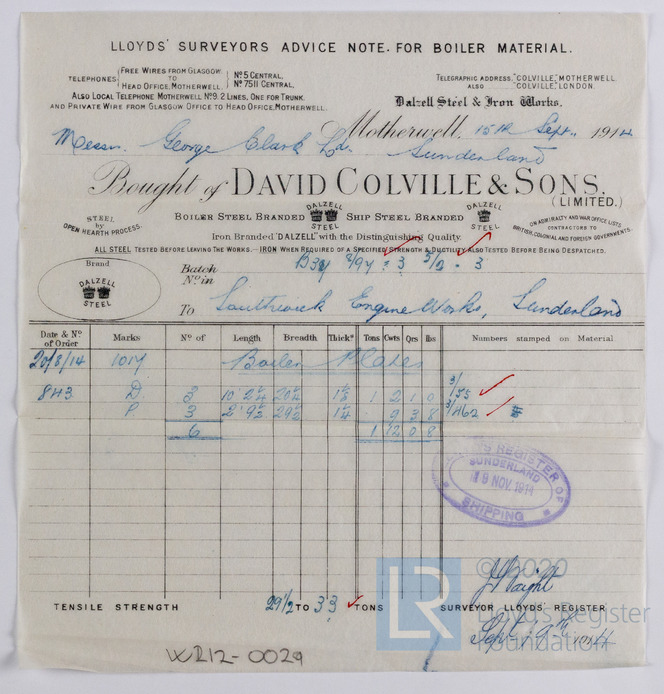 LLOYDS' SURVEYORS ADVICE NOTE. FOR BOILER MATERIAL.
TELEPHONES { FREE WIRES FROM GLASGOW TO HEAD OFFICE, MOTHERWELL. } Nº 5 CENTRAL, Nº 7511 CENTRAL,
ALSO LOCAL TELEPHONE MOTHERWELL Nº 9. 2 LINES, ONE FOR TRUNK.
AND PRIVATE WIRE FROM GLASGOW OFFICE TO HEAD OFFICE, MOTHERWELL.
TELEGRAPHIC ADDRESS, "COLVILLE," MOTHERWELL.
ALSO "COLVILLE," LONDON.
Dalzell Steel & Iron Works.
Motherwell, 15th Sept., 1914
Messrs. George Clark Ld. Sunderland
Bought of DAVID COLVILLE & SONS,
(LIMITED.)
STEEL by OPEN HEARTH PROCESS.
BOILER STEEL BRANDED DALZELL STEEL SHIP STEEL BRANDED DALZELL STEEL
ON ADMIRALTY AND WAR OFFICE LISTS
CONTRACTORS TO
BRITISH, COLONIAL AND FOREIGN GOVERNMENTS.
Iron Branded "DALZELL" with the Distinguishing Quality.
ALL STEEL TESTED BEFORE LEAVING THE WORKS.—IRON WHEN REQUIRED OF A SPECIFIED STRENGTH & DUCTILITY ALSO TESTED BEFORE BEING DESPATCHED.
Brand
DALZELL STEEL
Batch
Nº in
To Southwick Engine Works, Sunderland
Date & Nº of Order Marks Nº of Length Breadth Thick' Tons Cwts Qrs lbs Numbers stamped on Material
20/8/14 1017 Boiler Plates
843 D 3 1 2 1 0 3/155
P 3 9 3 8 3/462
6 1 12 0 8
LLOYD'S REGISTER OF SHIPPING
SUNDERLAND
NOV. 1914
© 2020
Lloyd's Register
Foundation
LR
J Waight
TENSILE STRENGTH 29½ TO 33 TONS SURVEYOR LLOYD'S REGISTER
WR12-0029